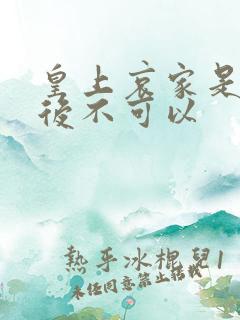 皇上哀家是
後不可以
熱乎冰棍兒1
未经同意禁止转载